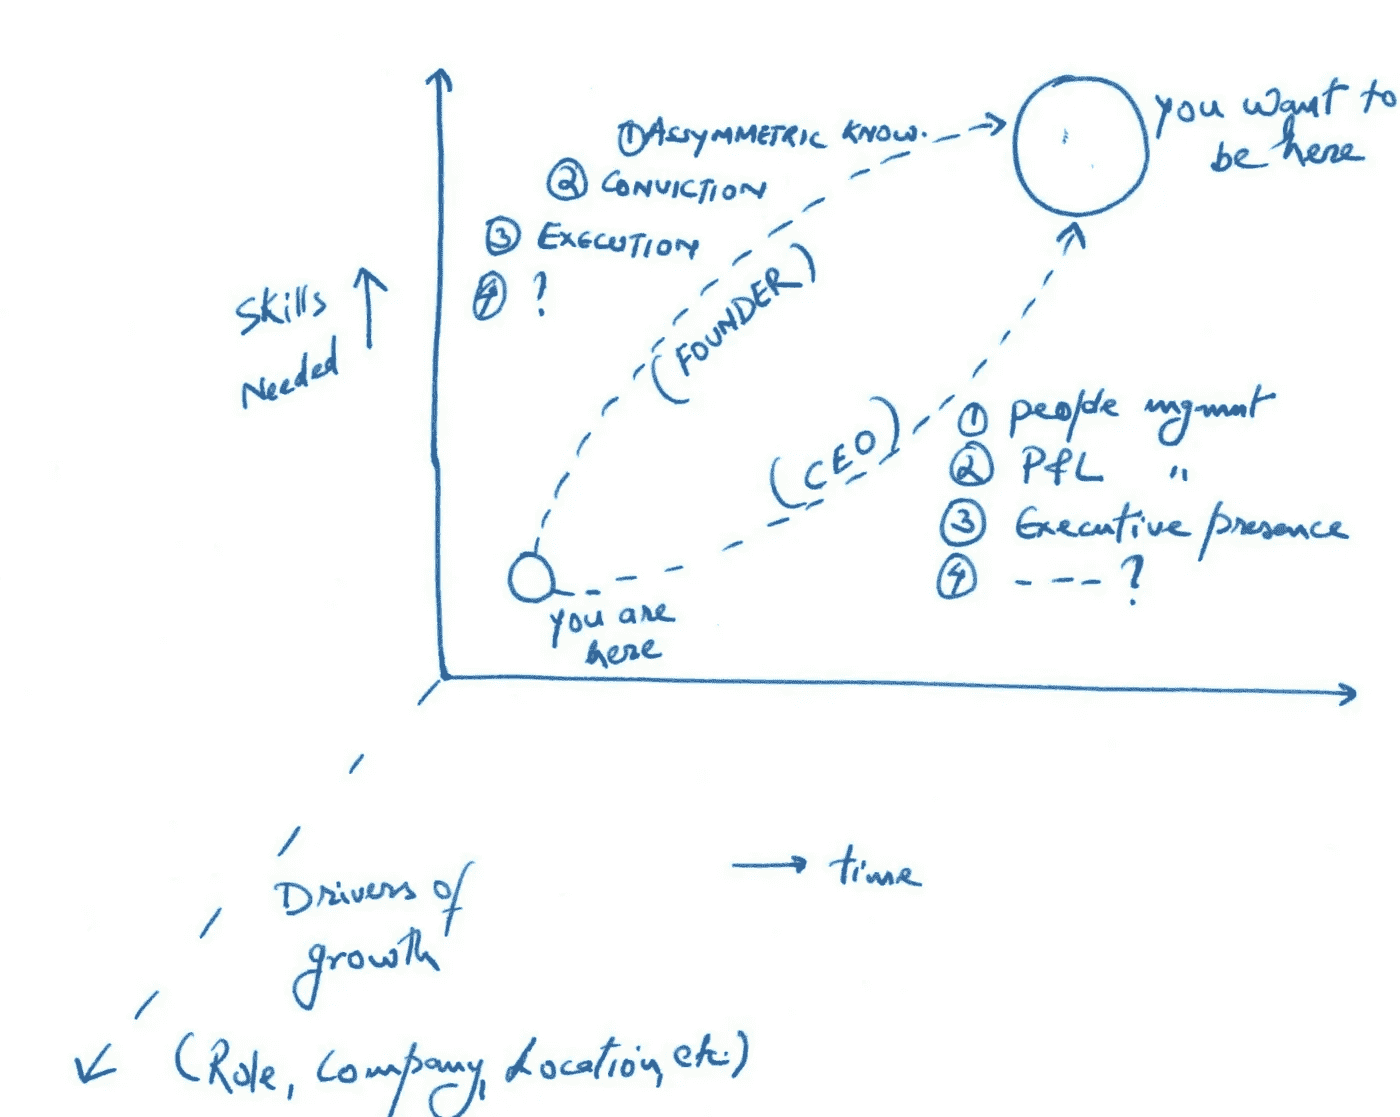 ① ASSYMMETRIC KNOW.
② CONVICTION
③ EXECUTION
④ ?
you want to
be here
Skills
Needed
(FOUNDER)
(CEO)
① people mgmnt
② P&L "
③ Executive presence
④ - - - - ?
you are
here
Drivers of
growth
time
(Role, Company, Location, etc.)